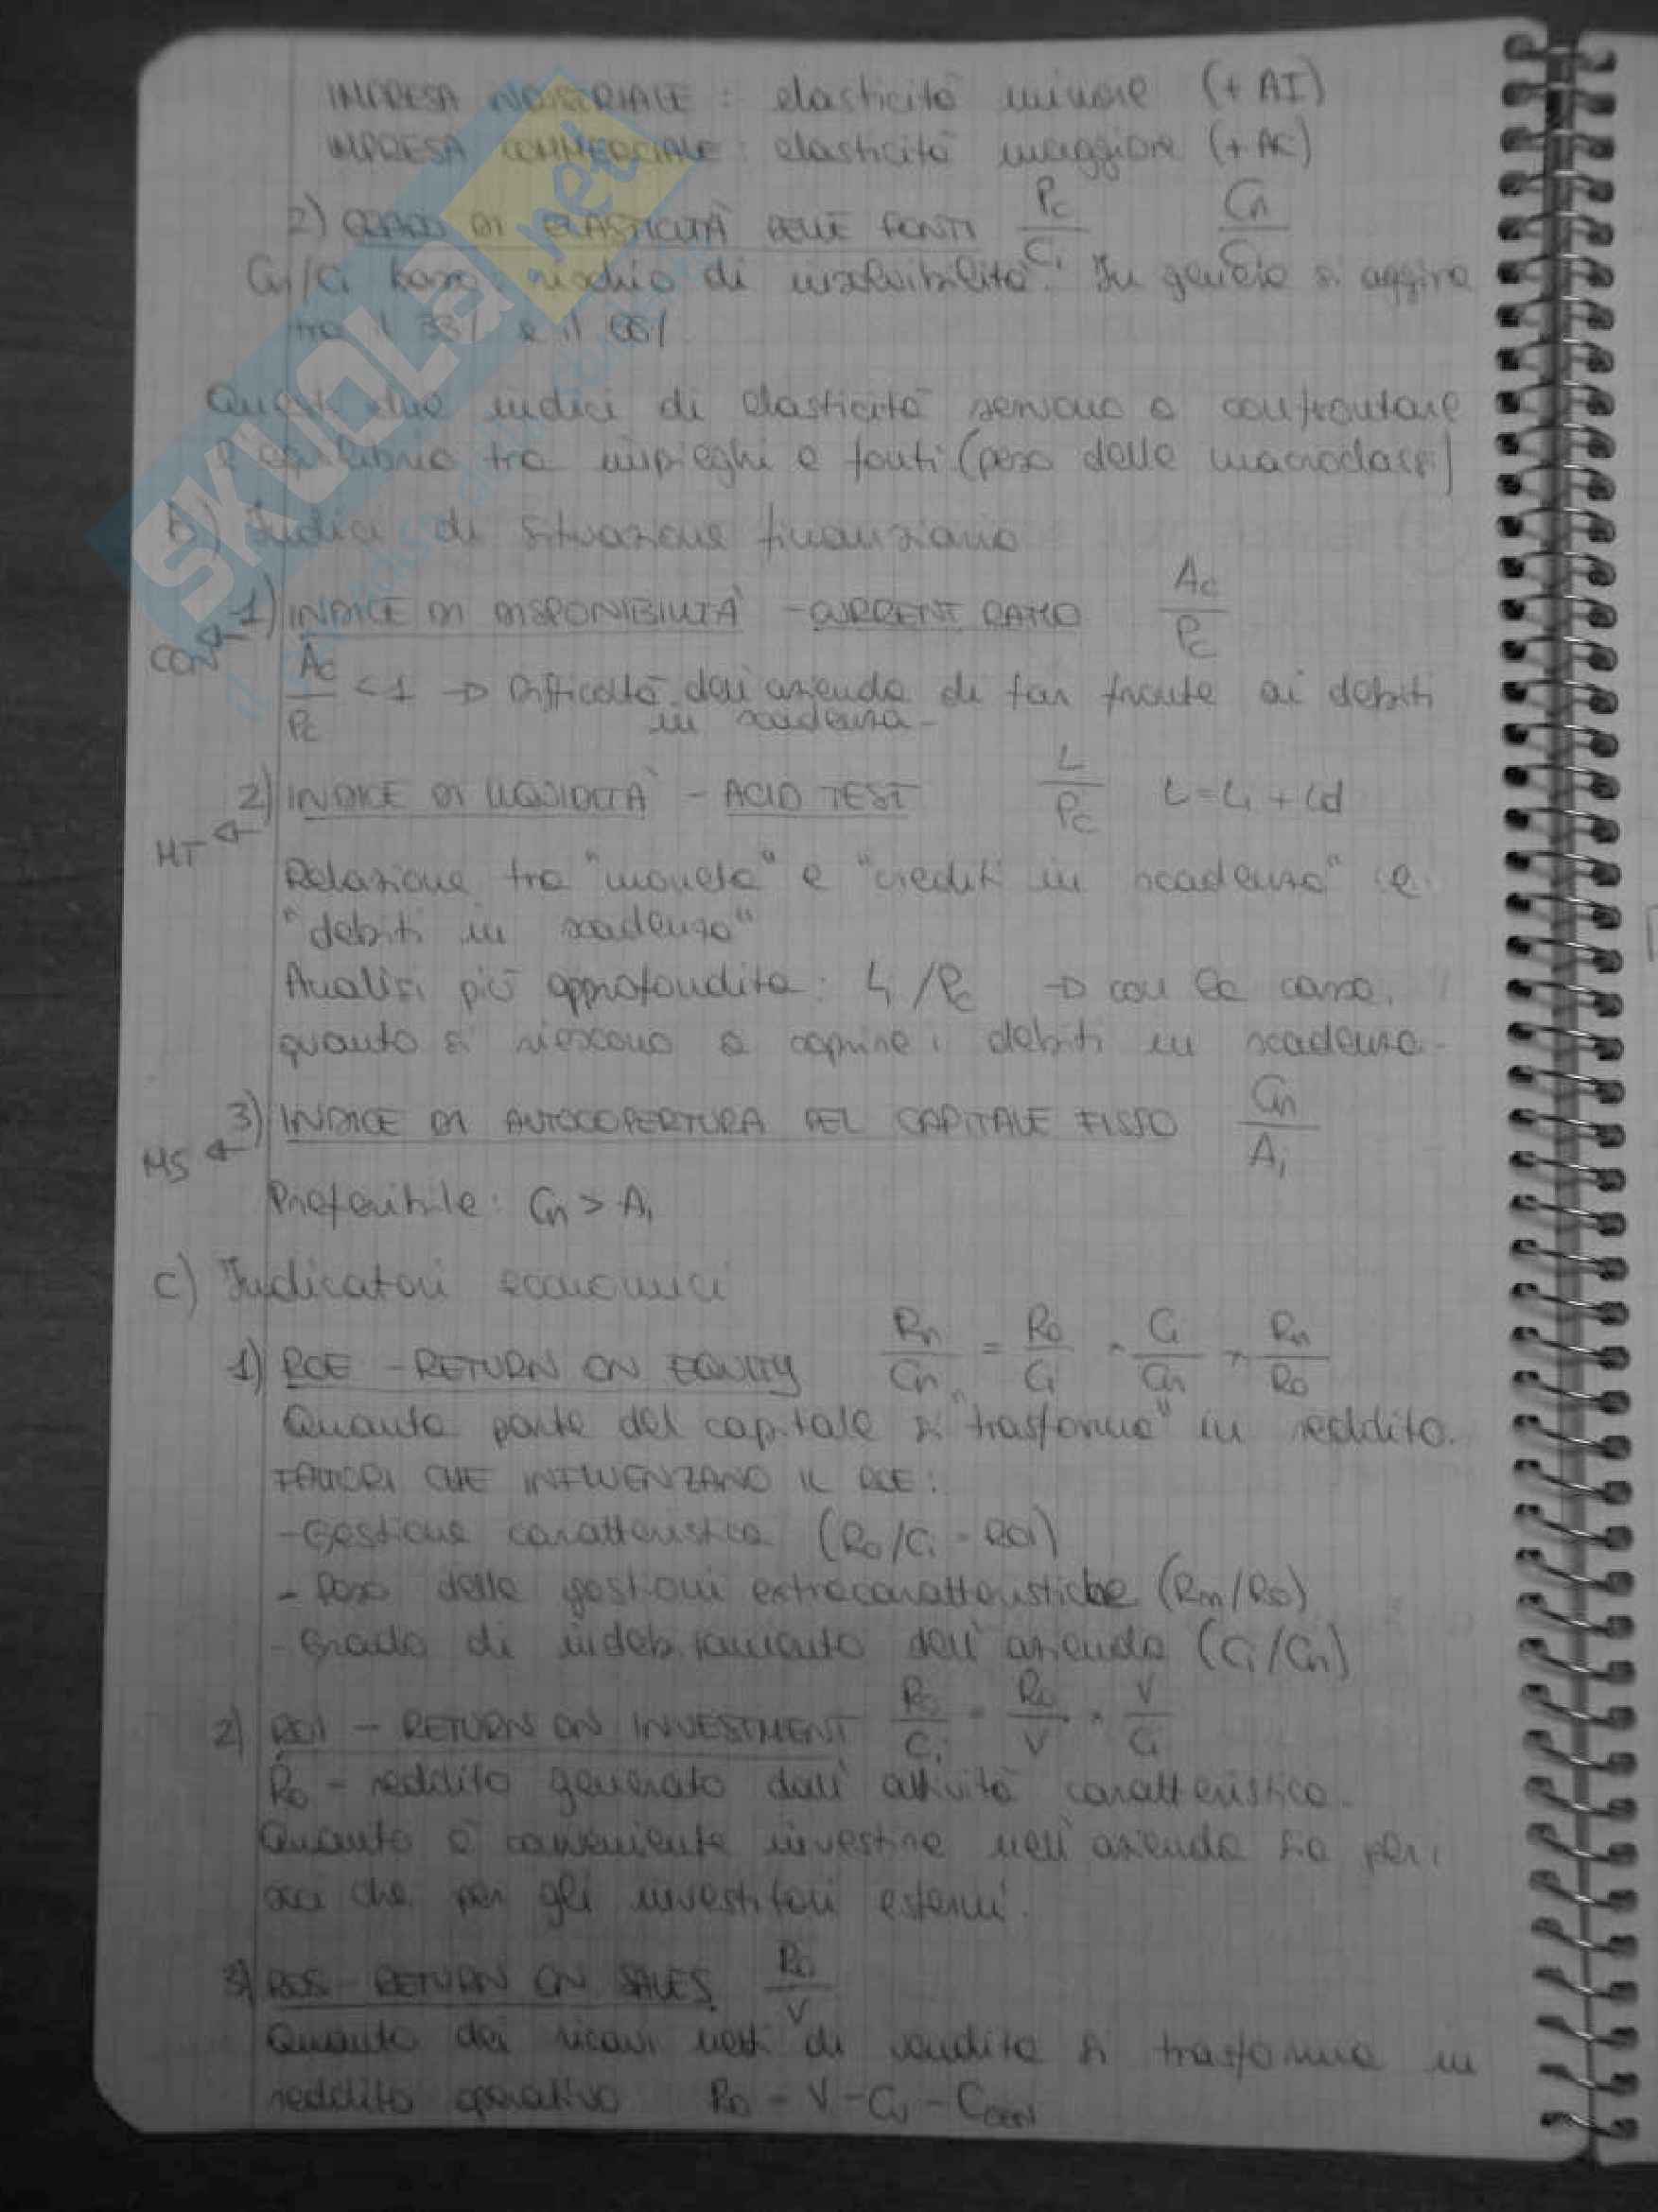 IMPRESA INDUSTRIALE : elasticità minore (+ AI)
IMPRESA COMMERCIALE : elasticità maggiore (+ AC)
2) GRADO DI ELASTICITÀ DELLE FONTI Pc/Ci Cn/Ci
Cn/Ci basso: rischio di insolvibilità. In genere si aggira
tra il 33% e il
Questi due indici di elasticità servono a confrontare
l'equilibrio tra impieghi e fonti (peso delle macroclassi)
B) Indici di situazione finanziaria
1) INDICE DI DISPONIBILITÀ - CURRENT RATIO Ac/Pc
CCN
Ac/Pc < 1 → Difficoltà dell'azienda di far fronte ai debiti
in scadenza.
2) INDICE DI LIQUIDITÀ - ACID TEST L/Pc L = Li + Ld
MT
Relazione tra "moneta" e "crediti in scadenza" e
"debiti in scadenza"
Analisi più approfondita: Li/Pc → con la cassa,
quanto si riescono a coprire i debiti in scadenza.
3) INDICE DI AUTOCOPERTURA DEL CAPITALE FISSO Cn/Ai
MS
Preferibile: Cn > Ai
C) Indicatori economici
1) ROE - RETURN ON EQUITY Rn/Cn = Ro/Ci * Ci/Cn * Rn/Ro
Quanta parte del capitale si "trasforma" in reddito.
FATTORI CHE INFLUENZANO IL ROE:
- Gestione caratteristica (Ro/Ci = ROI)
- Peso delle gestioni extracaratteristiche (Rn/Ro)
- Grado di indebitamento dell'azienda (Ci/Cn)
2) ROI - RETURN ON INVESTMENT Ro/Ci = Ro/V * V/Ci
Ro - reddito generato dall'attività caratteristica.
Quanto è conveniente investire nell'azienda sia per i
soci che per gli investitori esterni.
3) ROS - RETURN ON SALES Ro/V
Quanto dei ricavi netti di vendita si trasforma in
reddito operativo Ro = V - Cv -
SKUOLA.net